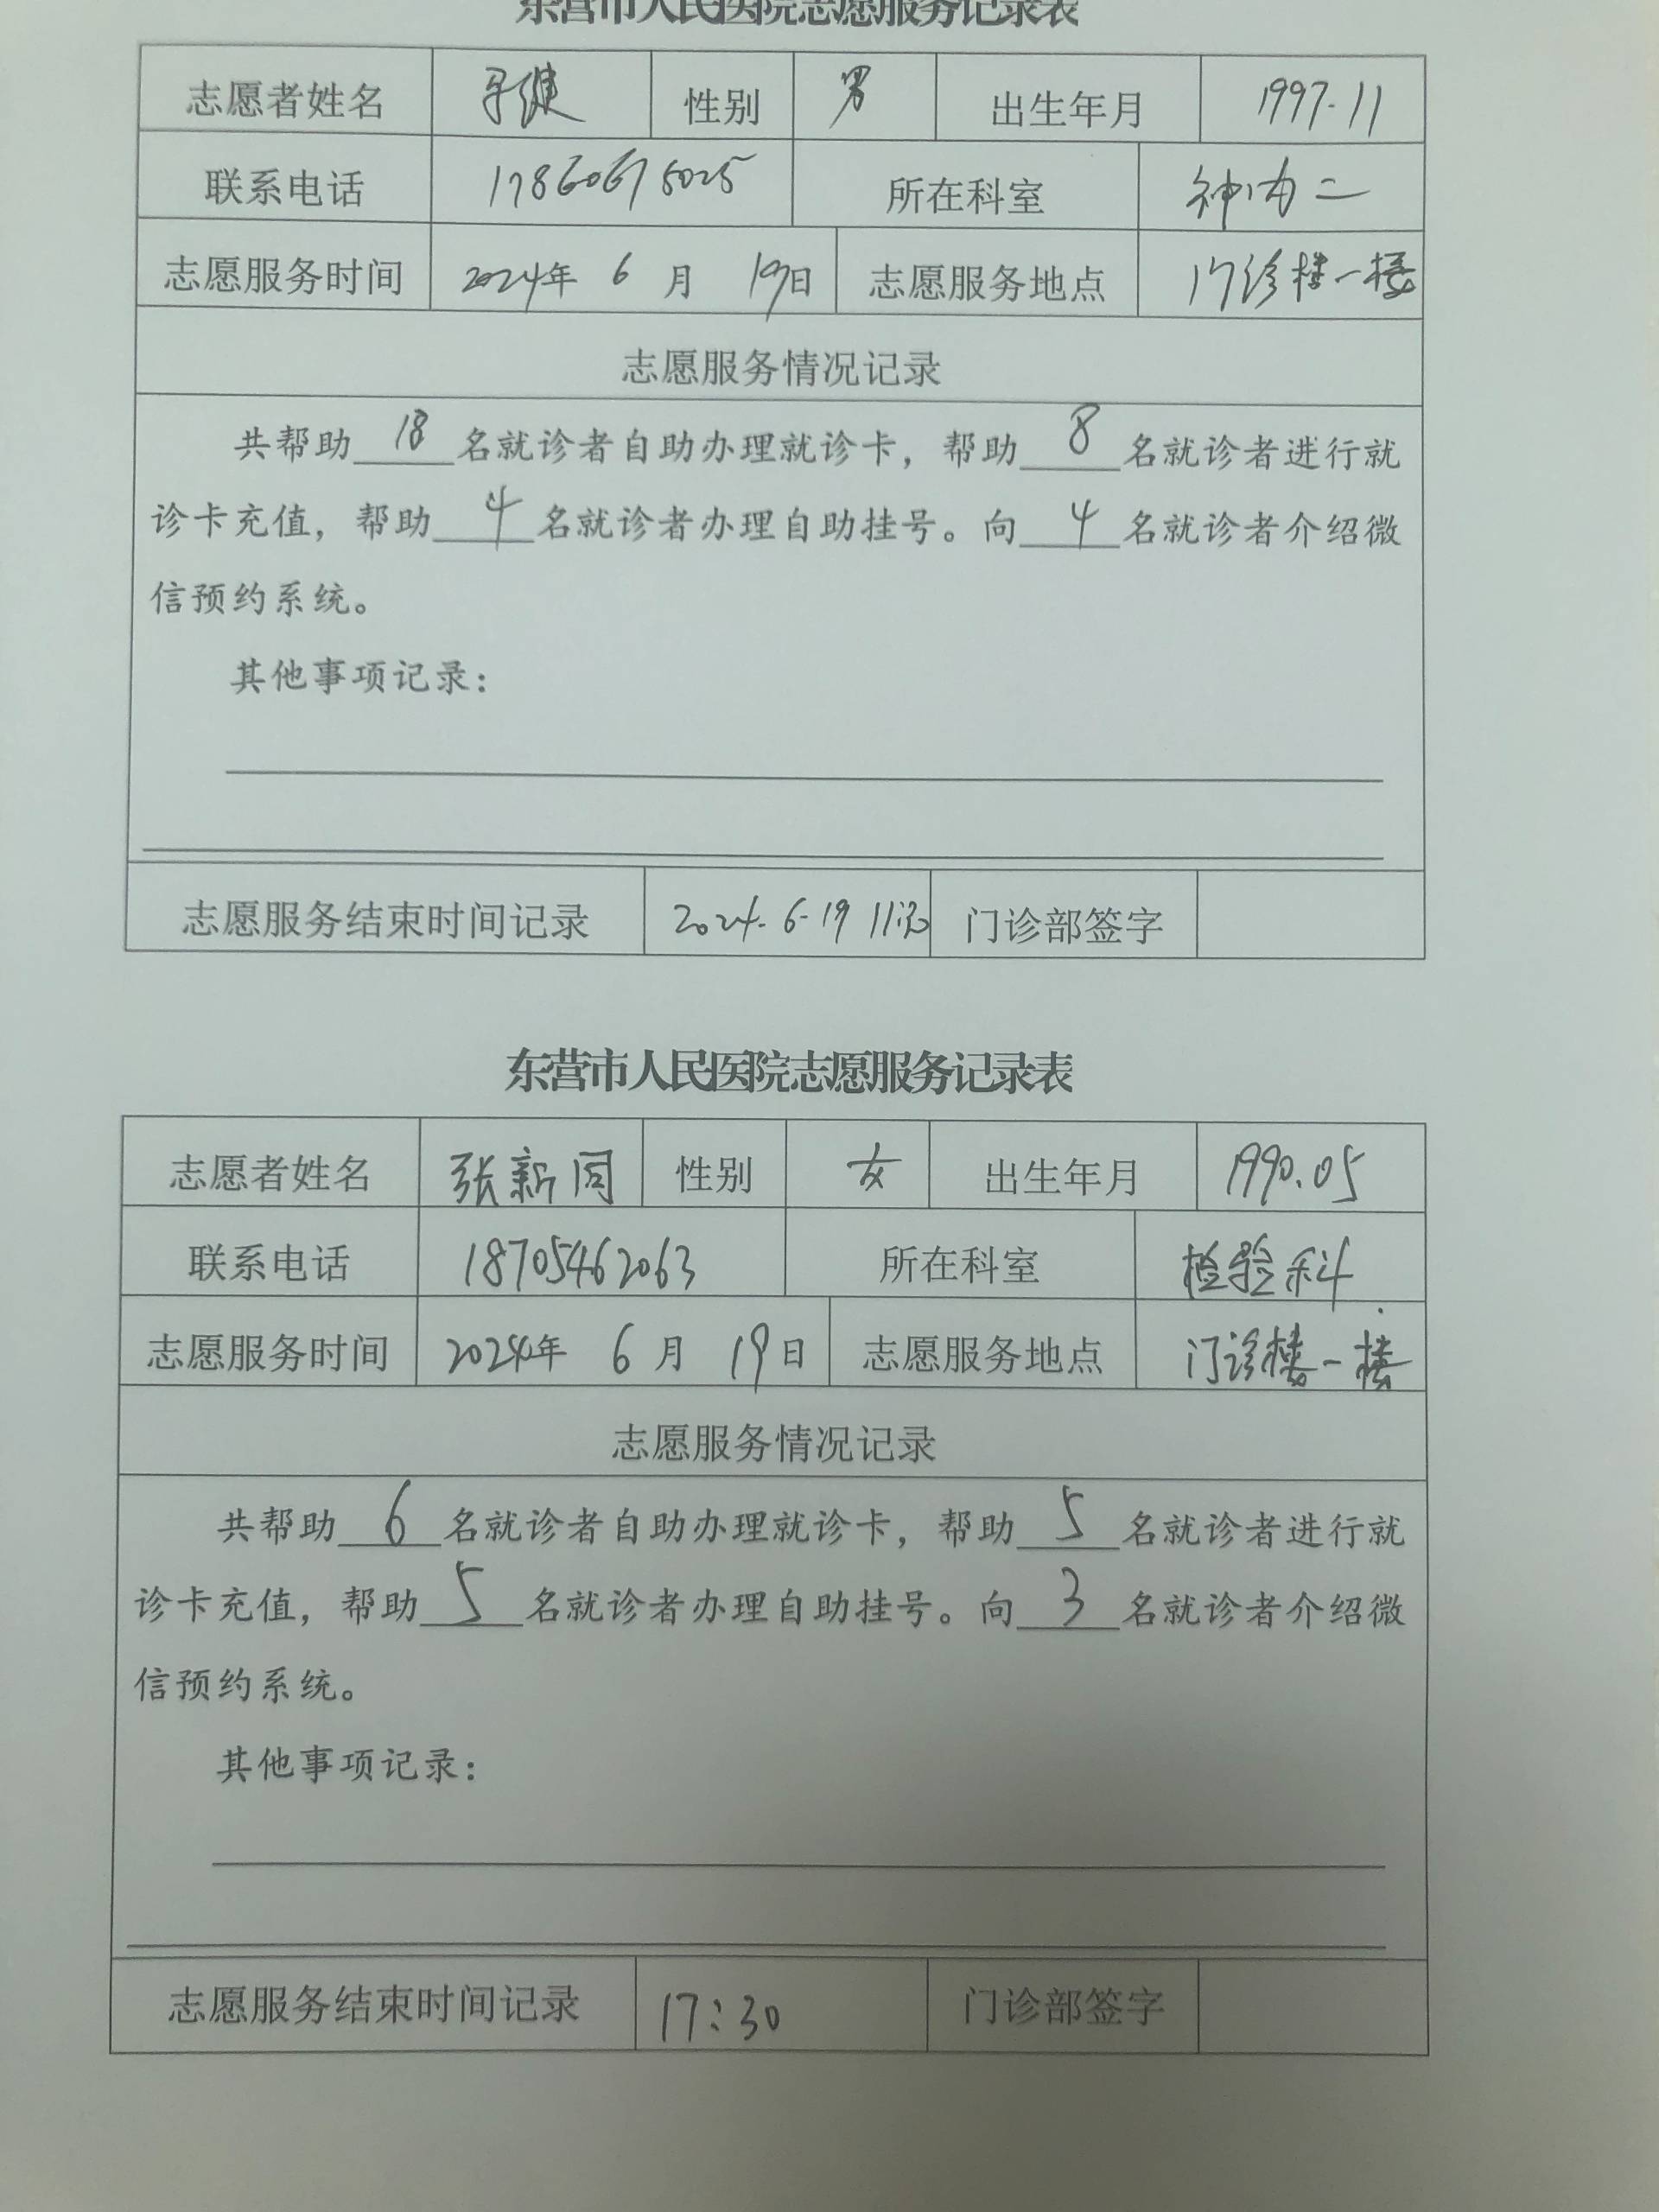 东营市人民医院志愿服务记录表
志愿者姓名 性别 男 出生年月 1997.11
联系电话 所在科室 神内二
志愿服务时间 2024年 6 月 19日 志愿服务地点 门诊楼一楼
志愿服务情况记录
共帮助 18 名就诊者自助办理就诊卡，帮助 8 名就诊者进行就
诊卡充值，帮助 4 名就诊者办理自助挂号。向 4 名就诊者介绍微
信预约系统。
其他事项记录：
志愿服务结束时间记录 2024.6.19 门诊部签字
东营市人民医院志愿服务记录表
志愿者姓名 张新同 性别 女 出生年月 1990.05
联系电话 18705462063 所在科室 检验科
志愿服务时间 2024年 6 月 19日 志愿服务地点 门诊楼一楼
志愿服务情况记录
共帮助 6 名就诊者自助办理就诊卡，帮助 5 名就诊者进行就
诊卡充值，帮助 5 名就诊者办理自助挂号。向 3 名就诊者介绍微
信预约系统。
其他事项记录：
志愿服务结束时间记录 17:30 门诊部签字